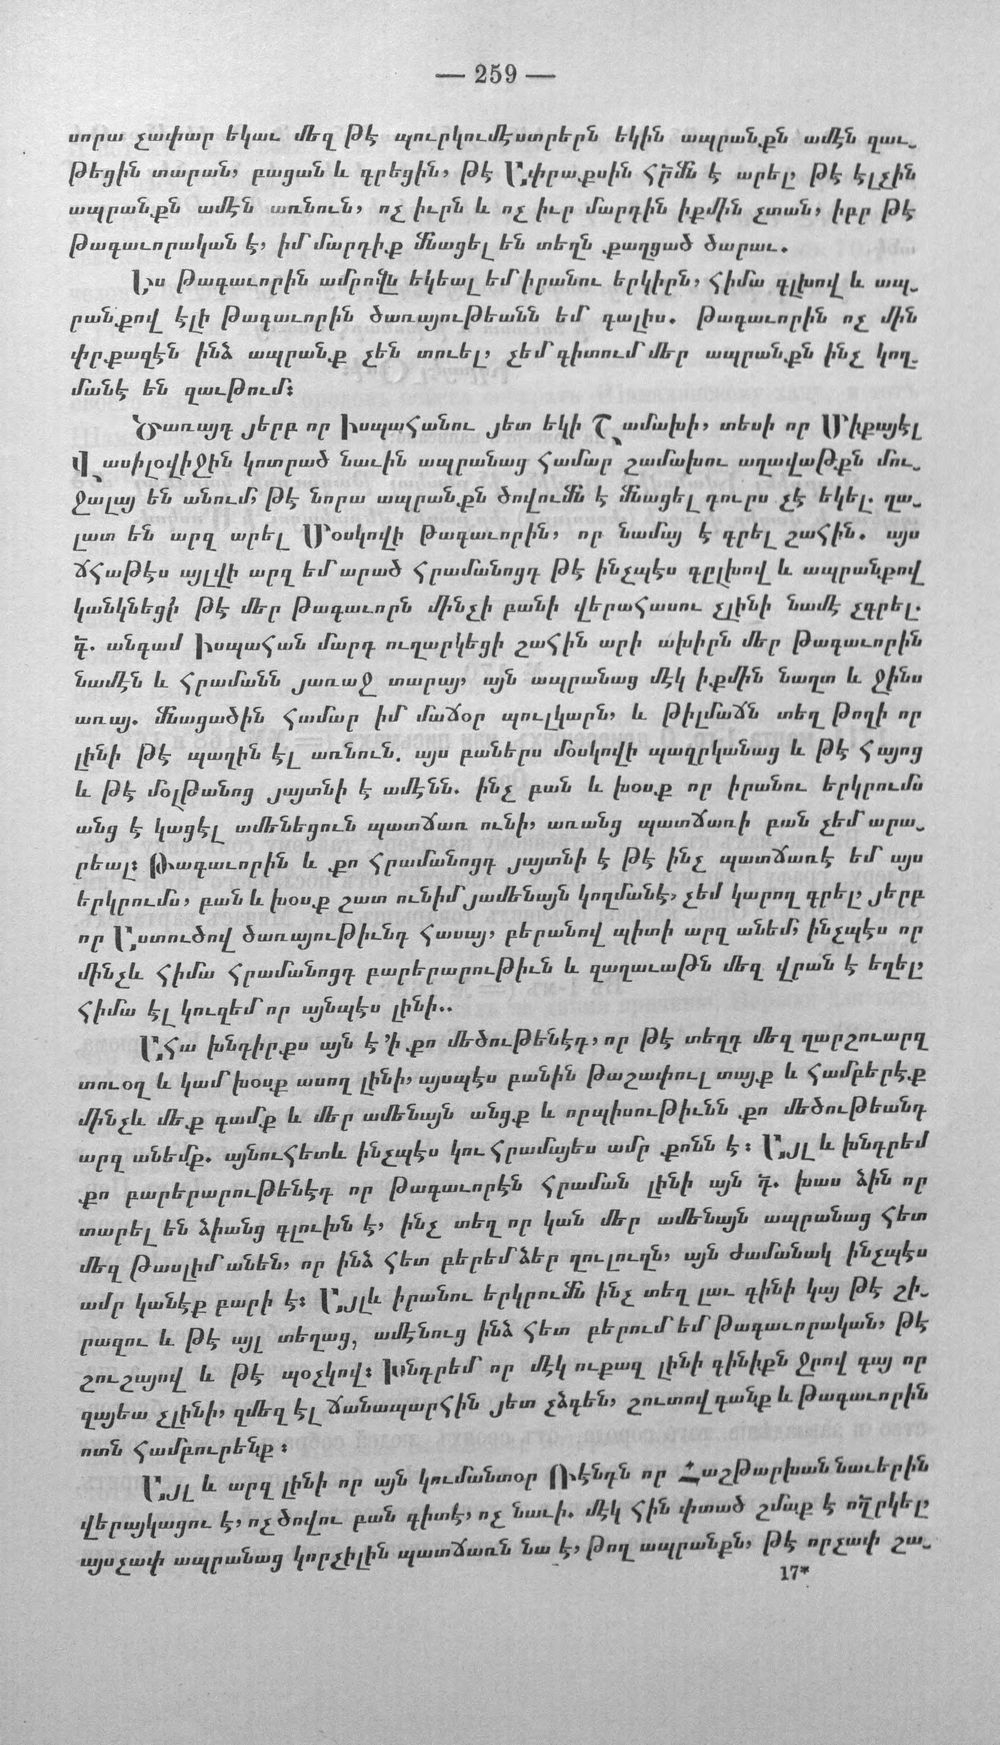 — 259 —
սորա չափար եկաւ մեզ թէ պուրկումէստրերն եկին ապրանքն ամէն զաւ-
թեցին տարան, բացան և գրեցին, թէ Ափրաքսին հր̃մն է արել, թէ էլչին
ապրանքն ամէն առնուն, ոչ իւրն և ոչ իւր մարդին իքմին չտան, իբր թէ
թագաւորական է, իմ մարդիք մնացել են տեղն քաղցած ծարաւ.
Ես թագաւորին ամրովն եկեալ եմ իրանու երկիրն, հիմա գլխով և ապ-
րանքով էլի թագաւորին ծառայութեանն եմ գալիս. թագաւորին ոչ մին
փրքազէն ինձ ապրանք չեն տուել, չեմ գիտում մեր ապրանքն ինչ կող-
մանէ են զաւթում։
Ծառայդ յերբ որ Իսպահանու յետ եկի Շամախի, տեսի որ Միքայէլ
Վասիլօվիջին կոտրած նաւին ապրանաց համար շամախու աղավաթքն մու-
ջալայ են անում, թէ նորա ապրանքն ծովումն է մնացել դուրս չէ եկել. ղա-
լատ են արզ արել Մօսկովի թագաւորին, որ նամայ է գրել շահին. այս
ճհաթէս այլվի արզ եմ արած հրամանոցդ թէ ինչպէս գըլխով և ապրանքով
կանկնեցի թէ մեր թագաւորն մինչի բանի վերահասու չլինի նամէ չգրել.
դ̃. անգամ Իսպահան մարդ ուղարկեցի շահին արի ախիրն մեր թագաւորին
նամէն և հրամանն յառաջ տարայ, այն ապրանաց մէկ իքմին նաղտ և ջինս
առայ. մնացածին համար իմ մաճօր պուլկարն, և թիլմաճն տեղ թողի որ
լինի թէ պաղին էլ առնուն. այս բաներս մօսկովի պազրկանաց և թէ հայոց
և թէ մօլթանոց յայտնի է ամէնն. ինչ բան և խօսք որ իրանու երկրումս
անց է կացել ամենեցուն պատճառ ունի, առանց պատճառի բան չեմ արա-
րեալ։ Թագաւորին և քո հրամանոցդ յայտնի է թէ ինչ պատճառէ եմ այս
երկրումս, բան և խօսք շատ ունիմ յամենայն կողմանէ, չեմ կարող գրել, յերբ
որ Աստուծով ծառայութիւնդ հասայ, բերանով պիտի արզ անեմ, ինչպէս որ
մինչև հիմա հրամանոցդ բարերարութիւն և զաղաւաթն մեզ վրան է եղել,
հիմա էլ կուզեմ որ այնպէս լինի..
Ահա խնդիրքս այն է ՚ի քո մեծութենէդ, որ թէ տեղդ մեզ ղարշուարզ
տուօղ և կամ խօսք ասող լինի, այսպէս բանին թաշափուլ տայք և համբերէք
մինչև մեք գամք և մեր ամենայն անցք և որպիսութիւնն քո մեծութեանդ
արզ անեմք. այնուհետև ինչպէս կու հրամայես ամր քոնն է։ Այլ և խնդրեմ
քո բարերարութենէդ որ թագաւորէն հրաման լինի այն դ̃. խաս ձին որ
տարել են ձիանց գլուխն է, ինչ տեղ որ կան մեր ամենայն ապրանաց հետ
մեզ թասլիմ անեն, որ ինձ հետ բերեմ ձեր ղուլուղն, այն ժամանակ ինչպէս
ամր կանէք բարի է։ Այլև իրանու երկրումն ինչ տեղ լաւ գինի կայ թէ շի-
րազու և թէ այլ տեղաց, ամէնուց ինձ հետ բերում եմ թագաւորական, թէ
շուշայով և թէ պօչկով։ Խնդրեմ որ մէկ ուքազ լինի գինիքն ջրով գայ որ
զայեա չլինի, զմեզ էլ ճանապարհին յետ չձգեն, շուտով գանք և թագաւորին
ոտն համբուրենք։
Այլ և արզ լինի որ այն կումանտօր Ռէնդն որ Հաշթարխան նաւերին
վերայկացու է, ոչ ծովու բան գիտէ, ոչ նաւի. մէկ հին փտած շմաք է ող̃րկել,
այսչափ ապրանաց կորչիլին պատճառն նա է, թող ապրանքն, թէ որչափ շա-
17*